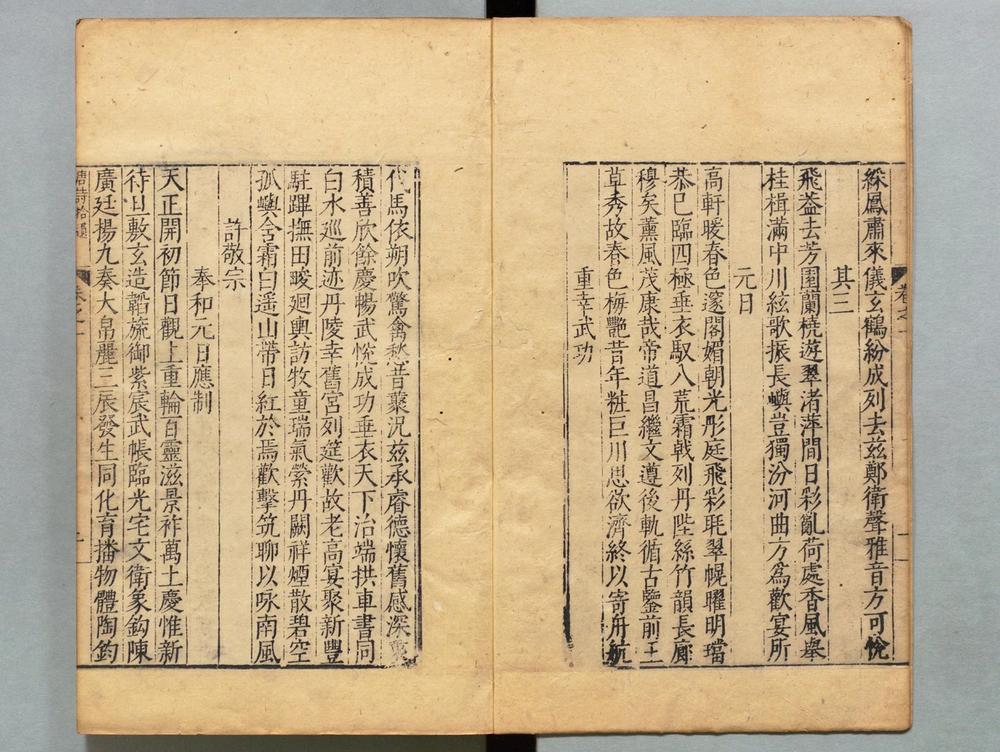 綵鳳肅來儀玄鶴紛成列去兹鄭衛聲雅音方可悅
其三
飛葢去芳園蘭橈遊翠渚萍間日彩亂荷處香風舉
桂楫滿中川絃歌振長嶼豈獨汾河曲方為歡宴所
元日
高軒暖春色邃閣媚朝光彤庭飛彩眊翠幌曜明璫
恭已臨四極垂衣馭八荒霜戟列丹陛絲竹韻長廊
穆矣薰風茂康哉帝道昌繼文遵後軌循古鑒前王
草秀故春色梅艷昔年粧巨川思欲濟終以寄舟航
重幸武功
卷之一
代馬依朔吹驚禽愁昔叢況兹承睿德懷舊感深衷
積善欣餘慶暢武悅成功垂衣天下治端拱車書同
白水巡前迹丹陵幸舊宮列筵歡故老高宴聚新豐
駐蹕撫田畯廻輿訪牧童瑞氣縈丹闕祥煙散碧空
孤嶼含霜白遥山帶日紅於焉歡擊筑聊以咏南風
許敬宗
奉和元日應制
天正開初節日觀上重輪百靈滋景祚萬土慶惟新
待旦敷玄造韜旒御紫宸武帳臨光宅文衛象鈎陳
廣廷揚九奏大帛麗三辰發生同化育播物體陶鈞
唐詩拾遺
卷之一